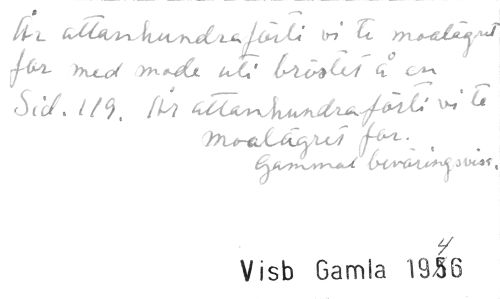 År attanhundraförti vi te moalägret
for med mode uti bröstet å en
Sid. 119. År attanhundraförti vi te
moalägret for.
Gammal beväringsvisa.
Visb Gamla 1946